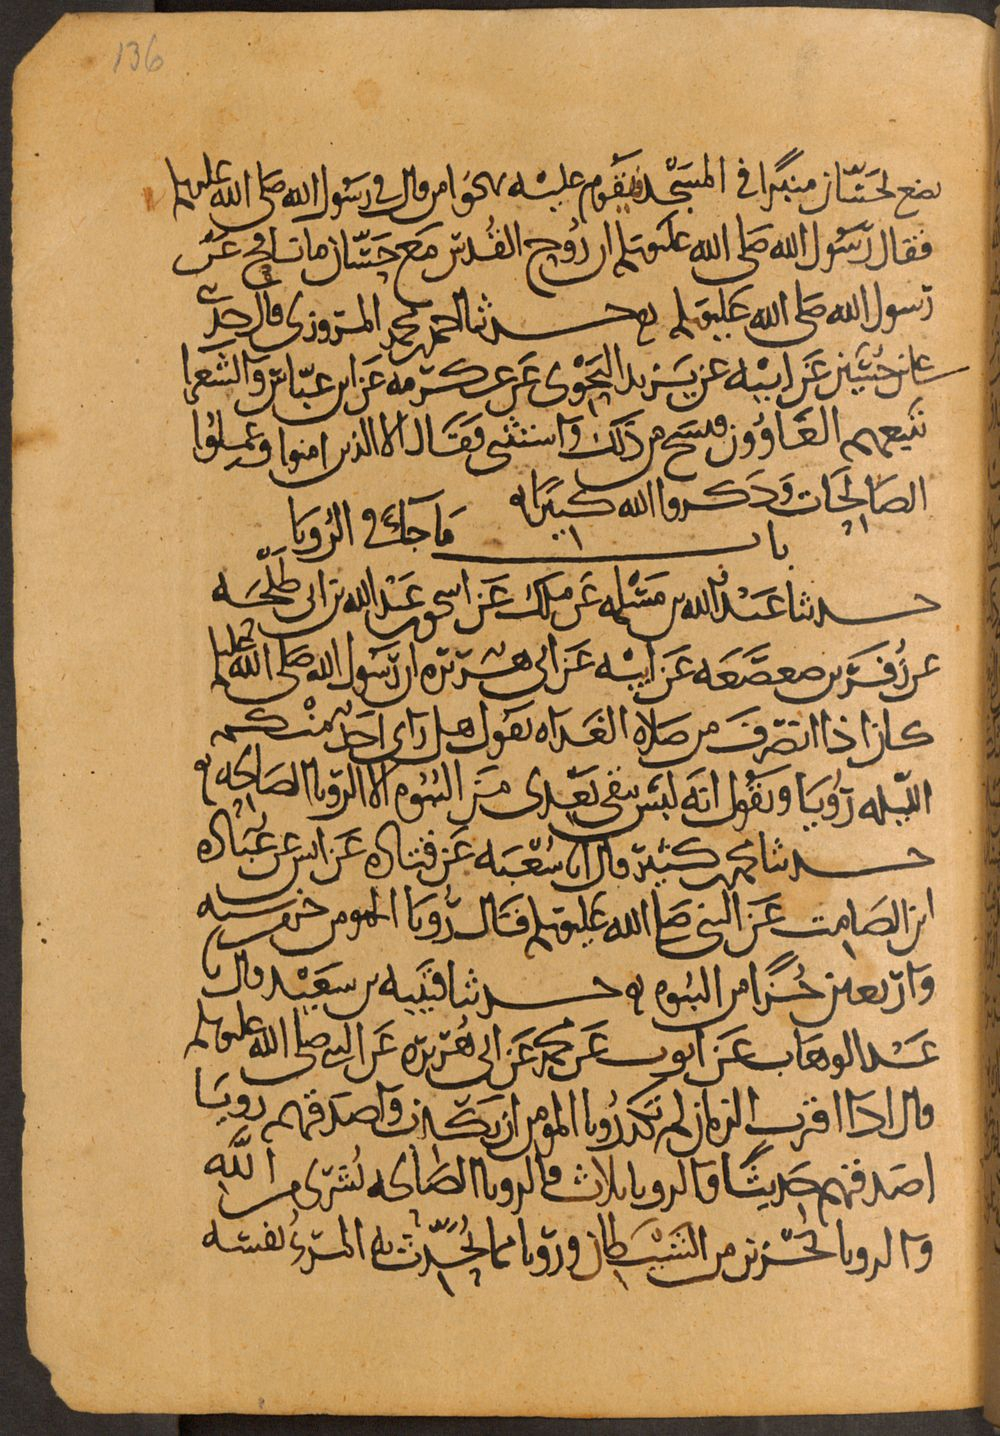 136
يضع لحسّان منبرًا في المسجد فيقوم عليه يهجوا من قال في رسول الله صلى الله عليه وسلم
فقال رسول الله صلى الله عليه وسلم ان روح القدس مع حسّان ما نافح عن
رسول الله صلى الله عليه وسلم حدثنا احمد بن محمد المروزي قال حدثني
علي بن حسين عن ابيه عن يزيد النحوي عن عكرمه عن ابن عباس والشعرا
يتبعهم الغاوون فنسخ من ذلك واستثنى فقال الا الذين امنوا وعملوا
الصالحات وذكروا الله كثيرا
باب ما جاء في الرويا
حدثنا عبد الله بن مسلمه عن ملك عن اسحق بن عبد الله بن ابي طلحه
عن زفر بن صعصعه عن ابيه عن ابي هريره ان رسول الله صلى الله عليه وسلم
كان اذا انصرف من صلاه الغداه يقول هل راى احد منكم
الليله رؤيا ويقول انه ليس يبقى بعدي من النبوه الا الرويا الصالحه
حدثنا محمد بن كثير قال انا شعبه عن قتاده عن انس عن عباده
ابن الصامت عن النبي صلى الله عليه وسلم قال رؤيا المومن جزو من سته
واربعين جزًا من النبوه حدثنا قتيبه بن سعيد قال نا
عبد الوهاب عن ايوب عن محمد عن ابي هريره عن النبي صلى الله عليه وسلم
قال اذا اقترب الزمان لم تكد رويا المومن ان تكذب واصدقهم رويا
اصدقهم حديثًا والرويا ثلاث فالرويا الصالحه بشرى من الله
والرويا تحزين من الشيطان ورويا مما يحدّث به المرء نفسه